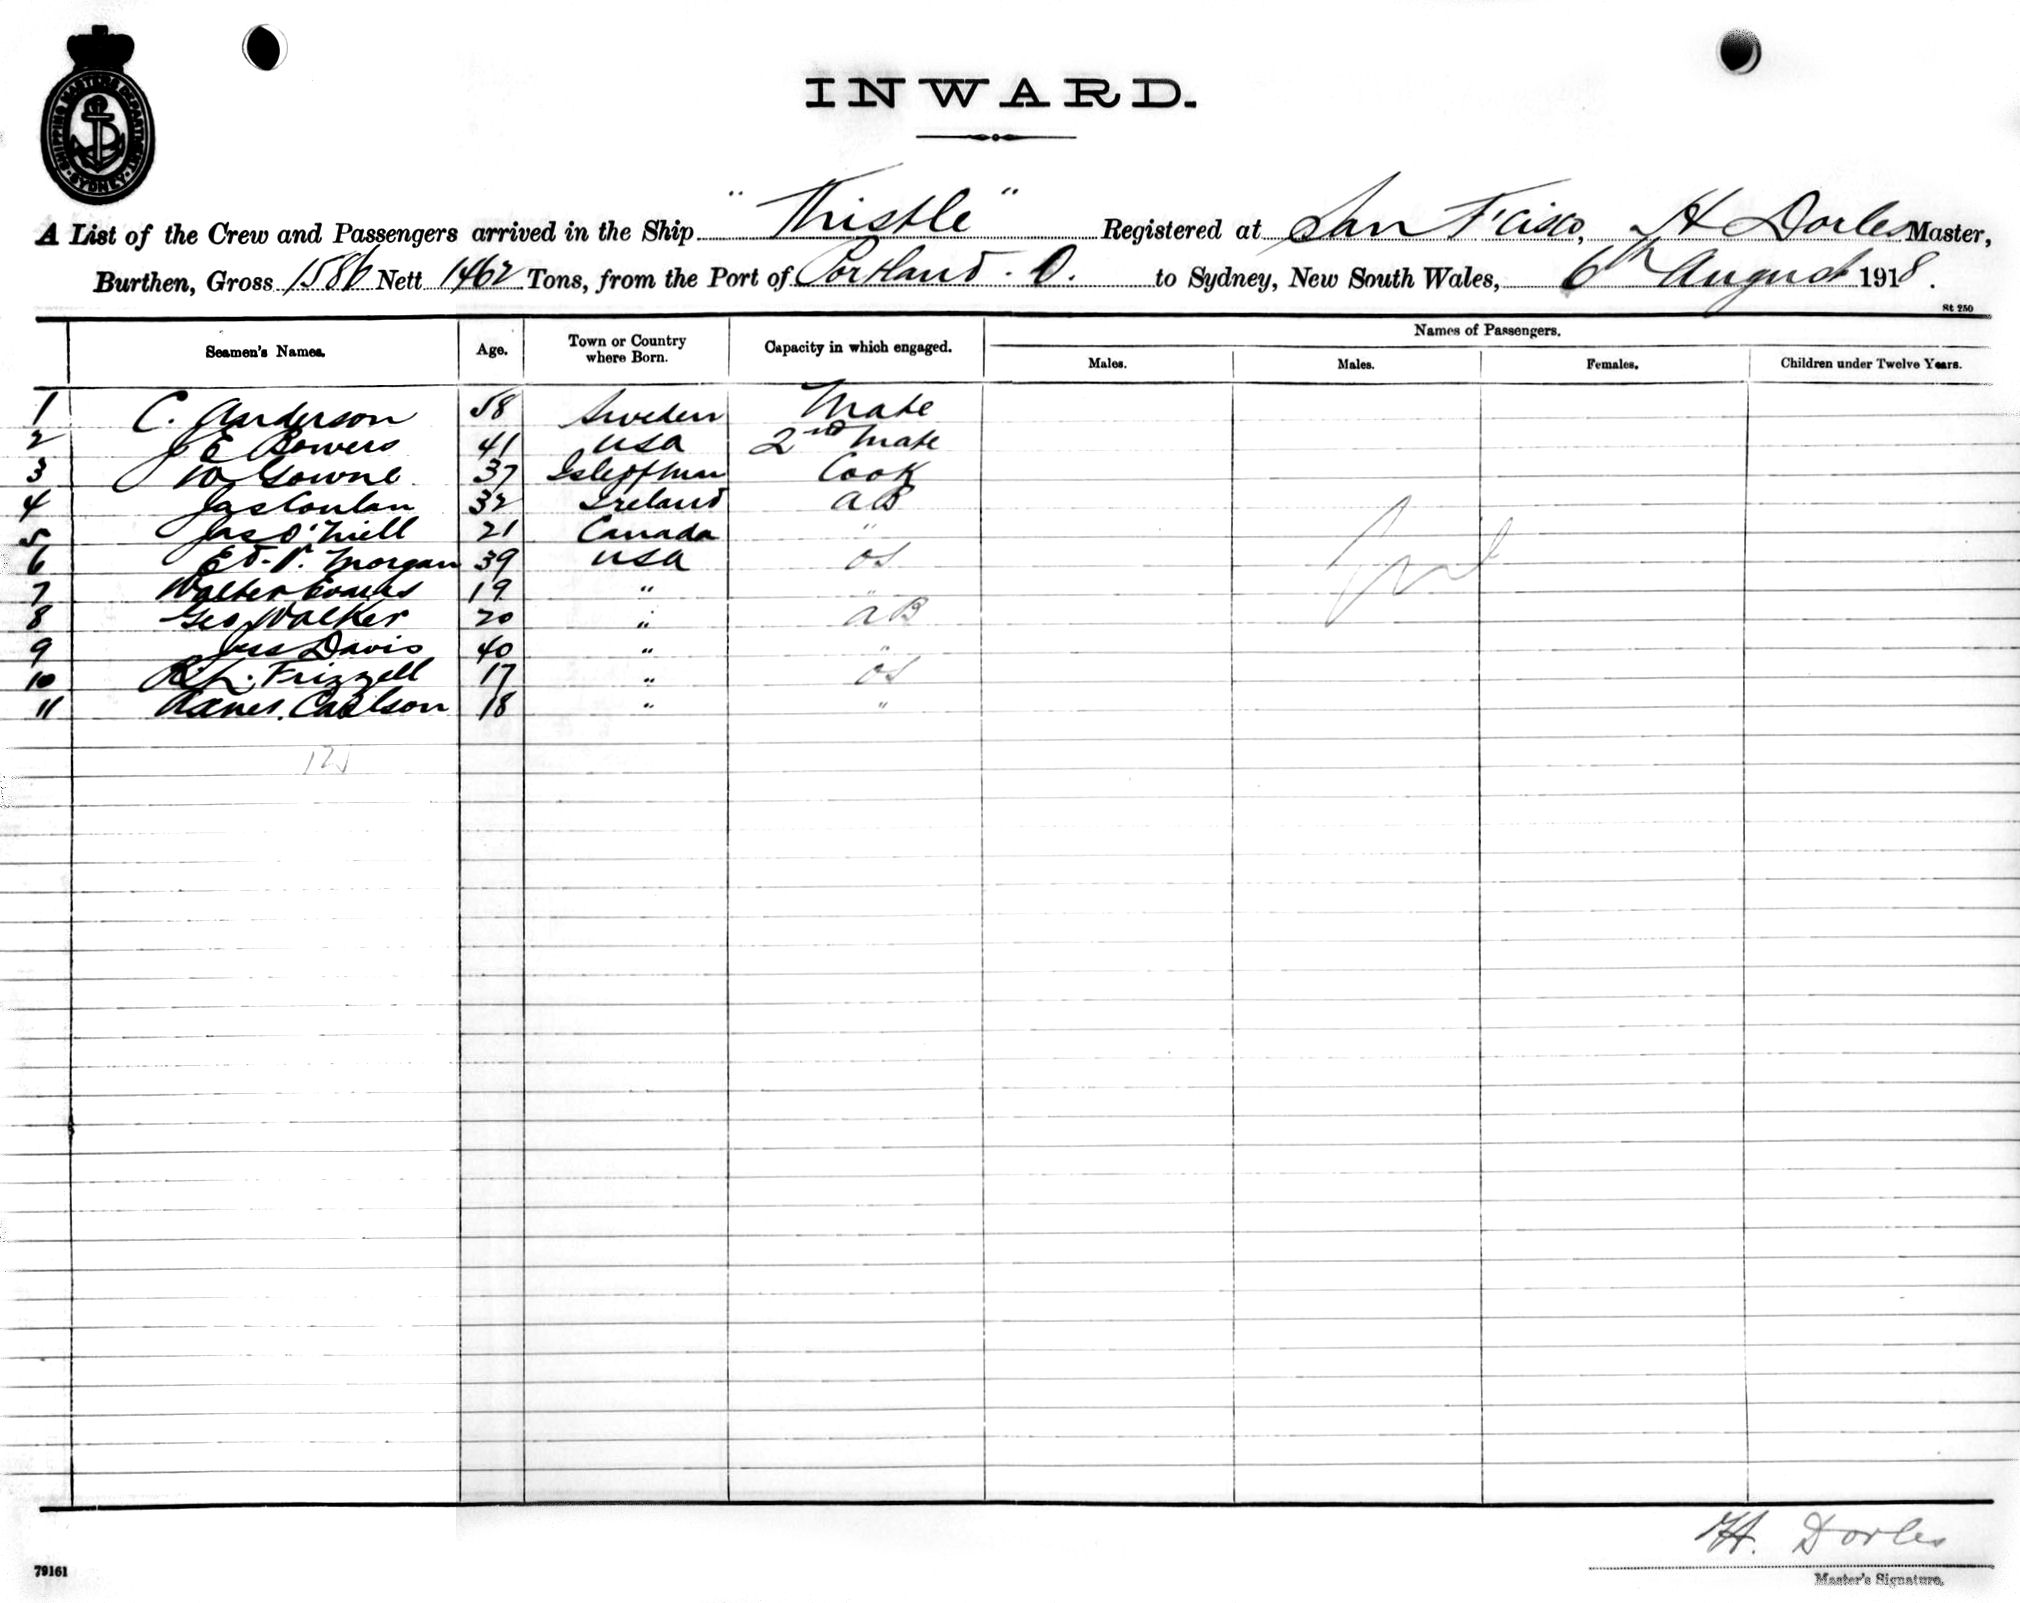 SHIPPING MASTERS DEPARTMENT
SYDNEY
INWARD.
A List of the Crew and Passengers arrived in the Ship "Thistle" Registered at San F'cisco, H Dorles Master,
Burthen, Gross 1586 Nett 1462 Tons, from the Port of Portland. O. to Sydney, New South Wales, 6th August 1918.
St 250
Seamen's Names. Age. Town or Country where Born. Capacity in which engaged. Names of Passengers.
Males. Males. Females. Children under Twelve Years.
1 C. Anderson 58 Sweden Mate
2 J E Bowers 41 USA 2nd Mate
3 W Gowne 37 Isle of Man Cook
4 Jas Conlan 32 Ireland AB
5 Jas O'Niell 21 Canada "
6 Ed. P. Morgan 39 USA OS
7 Walter Evans 19 " "
8 Geo Walker 20 " AB
9 Davis 40 " "
10 Frizzell 17 " OS
11 Carlson 18 " "
Nil
H. Dorles
79161
Master's Signature.